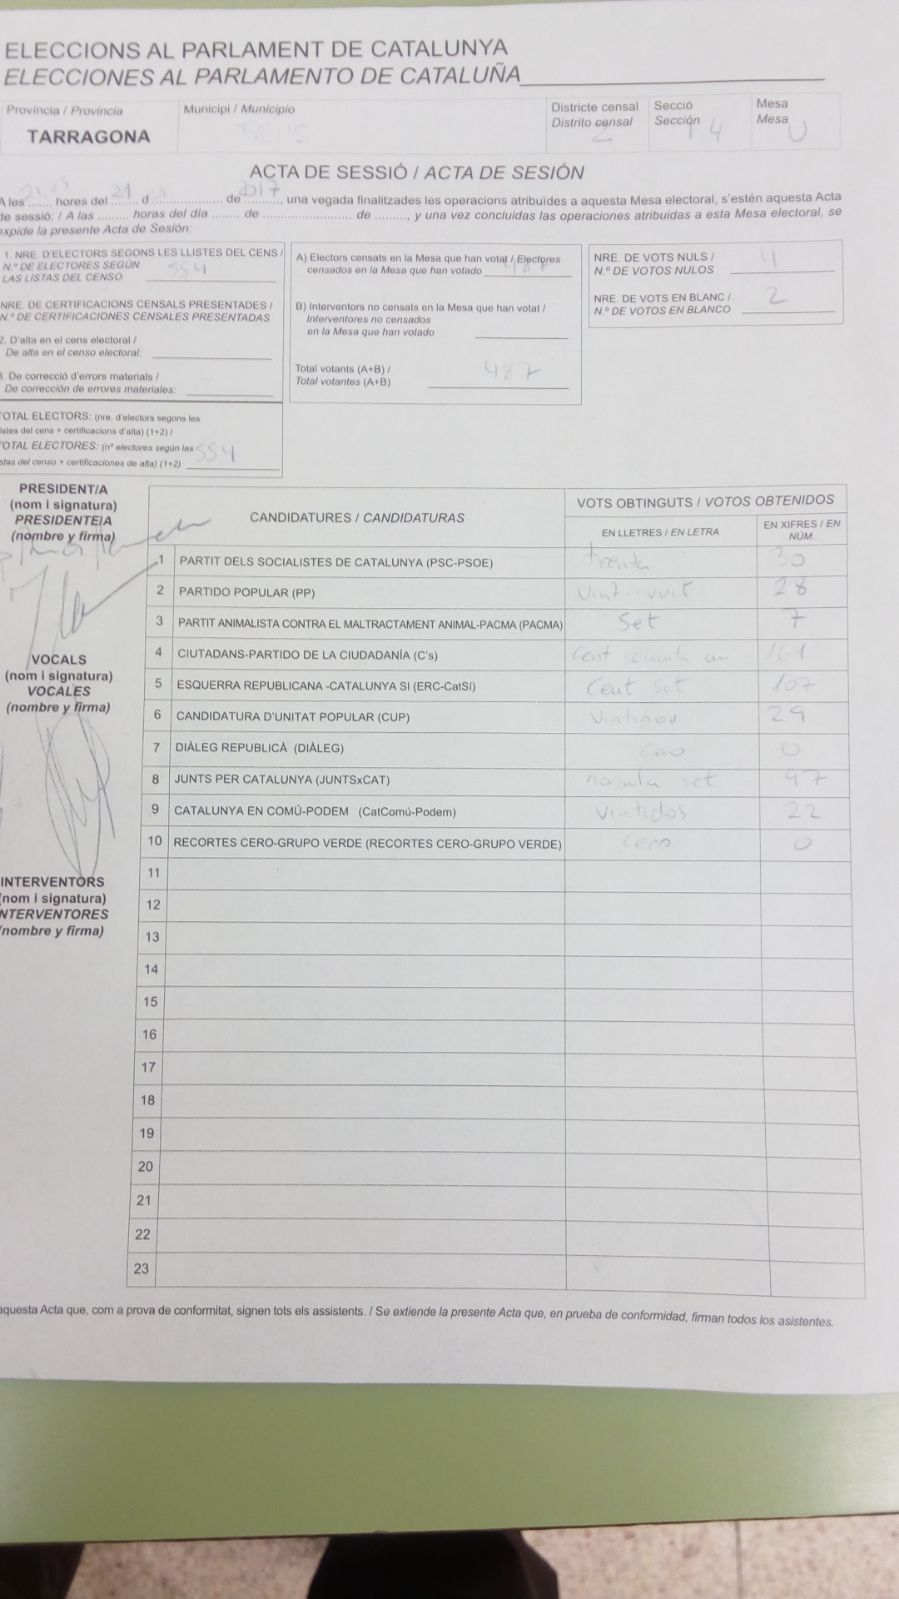 ELECCIONS AL PARLAMENT DE CATALUNYA
ELECCIONES AL PARLAMENTO DE CATALUÑA
Provincia / Provincia
TARRAGONA
Municipi / Municipio
REUS
Districte censal
Distrito censal
2
Secció
Sección
14
Mesa
Mesa
U
ACTA DE SESSIÓ / ACTA DE SESIÓN
A les ........ hores del 21 d ........ de 2017, una vegada finalitzades les operacions atribuides a aquesta Mesa electoral, s'estén aquesta Acta
de sessió: / A las ........ horas del día ........ de ........ de ........, y una vez concluidas las operaciones atribuidas a esta Mesa electoral, se
expide la presente Acta de Sesión:
1. NRE. D'ELECTORS SEGONS LES LLISTES DEL CENS /
N.º DE ELECTORES SEGÚN
LAS LISTAS DEL CENSO 554
NRE. DE CERTIFICACIONS CENSALS PRESENTADES /
N.º DE CERTIFICACIONES CENSALES PRESENTADAS
2. D'alta en el cens electoral /
De alta en el censo electoral:
3. De correcció d'errors materials /
De corrección de errores materiales:
TOTAL ELECTORS: (nre. d'electors segons les
llistes del cens + certificacions d'alta) (1+2) /
TOTAL ELECTORES: (nº electores según las
listas del censo + certificaciones de alta) (1+2) 554
A) Electors censats en la Mesa que han votat / Electores
censados en la Mesa que han votado 487
B) Interventors no censats en la Mesa que han votat /
Interventores no censados
en la Mesa que han votado
Total votants (A+B) /
Total votantes (A+B) 487
NRE. DE VOTS NULS /
N.º DE VOTOS NULOS 4
NRE. DE VOTS EN BLANC /
N.º DE VOTOS EN BLANCO 2
PRESIDENT/A
(nom i signatura)
PRESIDENTE/A
(nombre y firma)
VOCALS
(nom i signatura)
VOCALES
(nombre y firma)
INTERVENTORS
(nom i signatura)
INTERVENTORES
(nombre y firma)
CANDIDATURES / CANDIDATURAS
VOTS OBTINGUTS / VOTOS OBTENIDOS
EN LLETRES / EN LETRA
EN XIFRES / EN
NÚM.
1 PARTIT DELS SOCIALISTES DE CATALUNYA (PSC-PSOE) trenta 30
2 PARTIDO POPULAR (PP) vint-vuit 28
3 PARTIT ANIMALISTA CONTRA EL MALTRACTAMENT ANIMAL-PACMA (PACMA) Set 7
4 CIUTADANS-PARTIDO DE LA CIUDADANÍA (C's) Cent seixanta un 161
5 ESQUERRA REPUBLICANA -CATALUNYA SI (ERC-CatSI) Cent set 107
6 CANDIDATURA D'UNITAT POPULAR (CUP) Vintinou 29
7 DIÀLEG REPUBLICÀ (DIÀLEG) 0
8 JUNTS PER CATALUNYA (JUNTSxCAT) noranta set 97
9 CATALUNYA EN COMÚ-PODEM (CatComú-Podem) Vintidos 22
10 RECORTES CERO-GRUPO VERDE (RECORTES CERO-GRUPO VERDE) Cero 0
11
12
13
14
15
16
17
18
19
20
21
22
23
aquesta Acta que, com a prova de conformitat, signen tots els assistents. / Se extiende la presente Acta que, en prueba de conformidad, firman todos los asistentes.